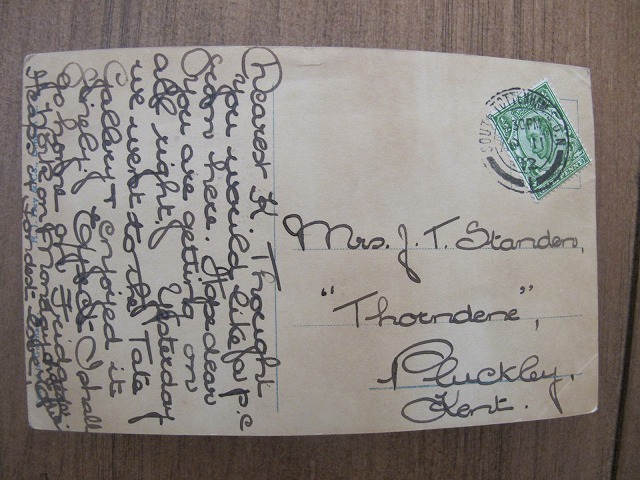 Dearest K. Thought
you would like a p.c
from here. Hope dear
you are getting on
all right, Yesterday
we went to the Tate
Gallery & enjoyed it
finely. I shall
go home on Friday
Heaps of fondest love
Mrs. J. T. Standen,
"Thorndene",
Pluckley,
Kent.
SOUTH TOTTENHAM